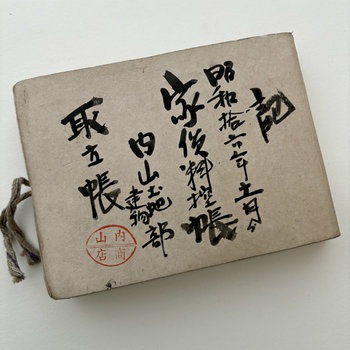 記
昭和拾六年十一月
家賃料控帳
内山土地建物部
取立帳
内山
商店